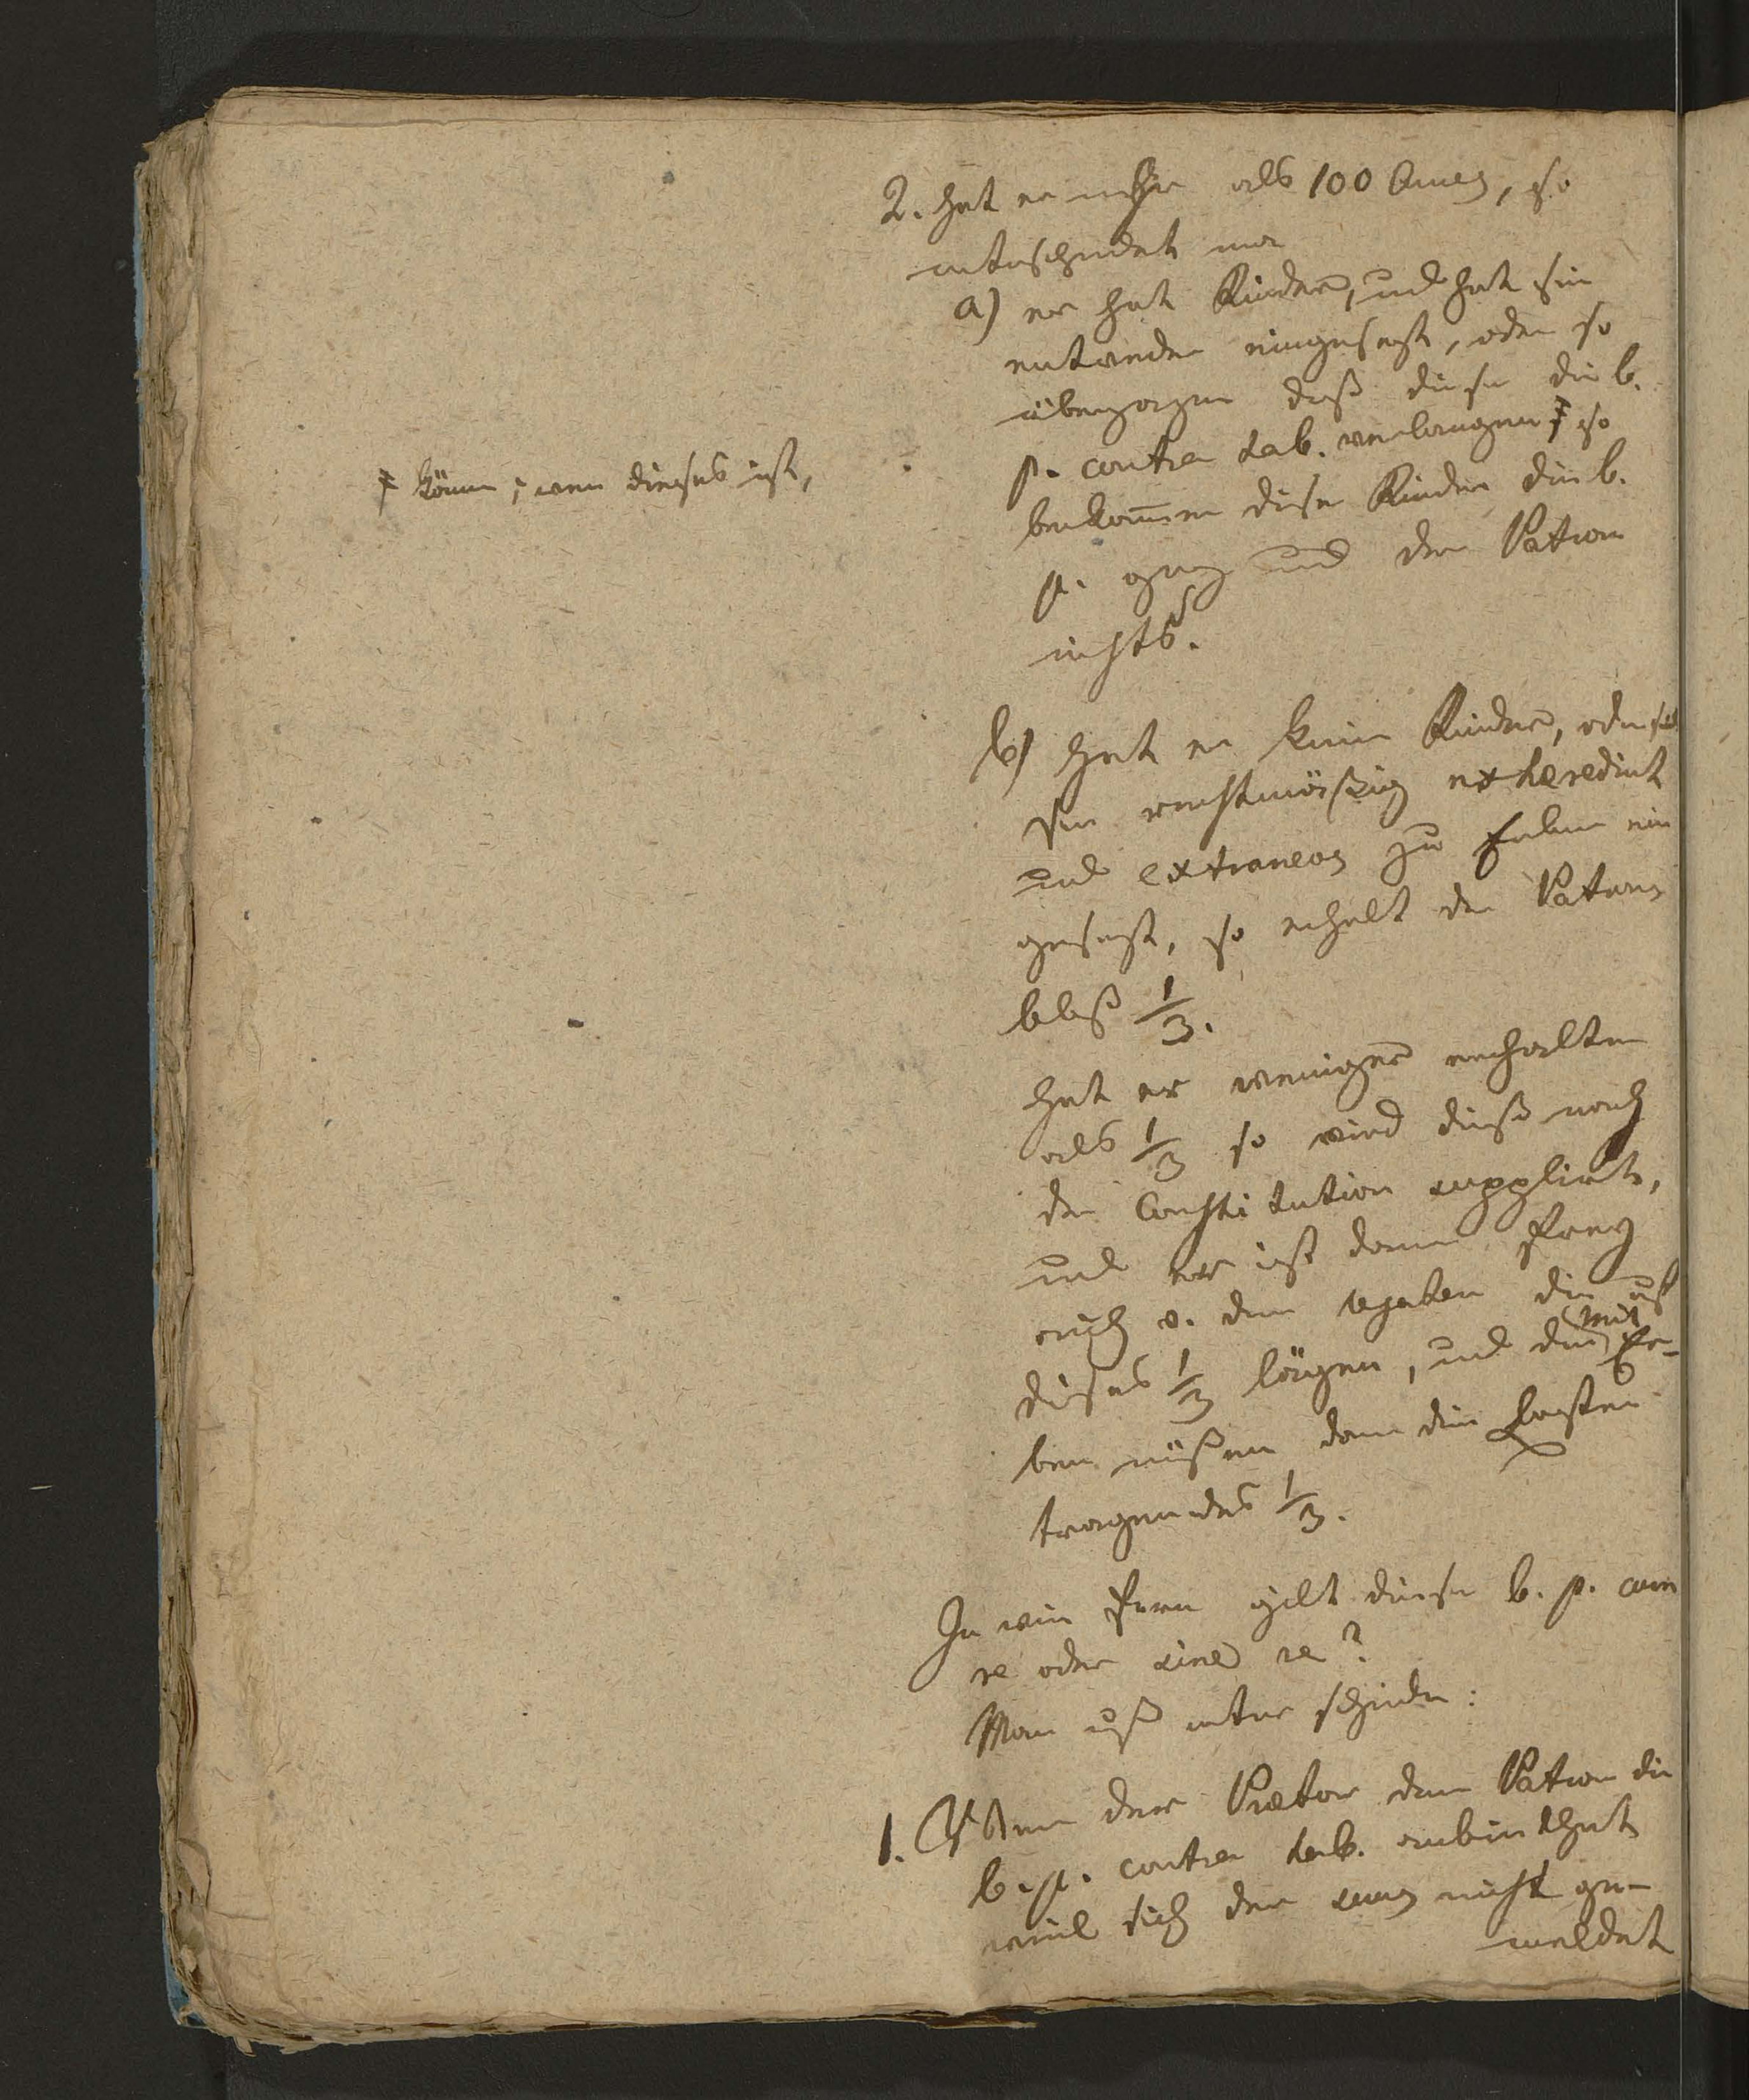 2. hat er mehr als 100 aureos, so
unterscheidet man
a) er hat Kinder, und hat sie
entweder eingesezt, oder so
übergangen daß diese die b.
p. contra tab. verlangen ŧ so
bekom̄en diese Kinder die b.
p. ganz und der Patron
nichts.
ŧ könen; wen dieses ist,
b) hat er keine Kinder, oder hat
sie rechtmäßig exheredirt
und extraneos zu Erben ein
gesezt, so erhelt der Patron
bloß 1/3.
hat er weniger erhalten
als 1/3 so wird dieß nach
der Constitution supplirt,
und er ist dann frey
auch v. den legaten die auf
dieses 1/3 lägen, und die Mit Er-
ben müßen dann die Lasten
tragen des 1/3.
In wie fern gilt diese b. p. cum
re oder sine re?
Man muß unter scheiden:
1. Wenn der Praetor dem Patron die
b. p. contra tab. anbiethet
weil sich der suus nicht ge-
meldet